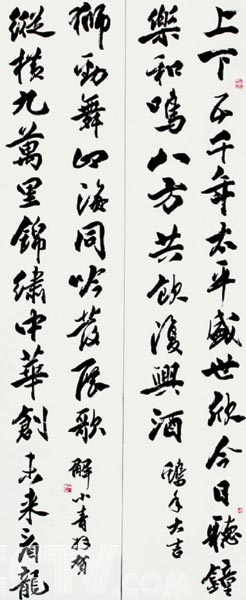 上下五千年太平盛世欣今日聽鐘
樂和鳴八方共飲復興酒
鷄年大吉
縱橫九萬里錦繡中華創未来看龍
獅勁舞四海同吟發展歌
解小青拜賀